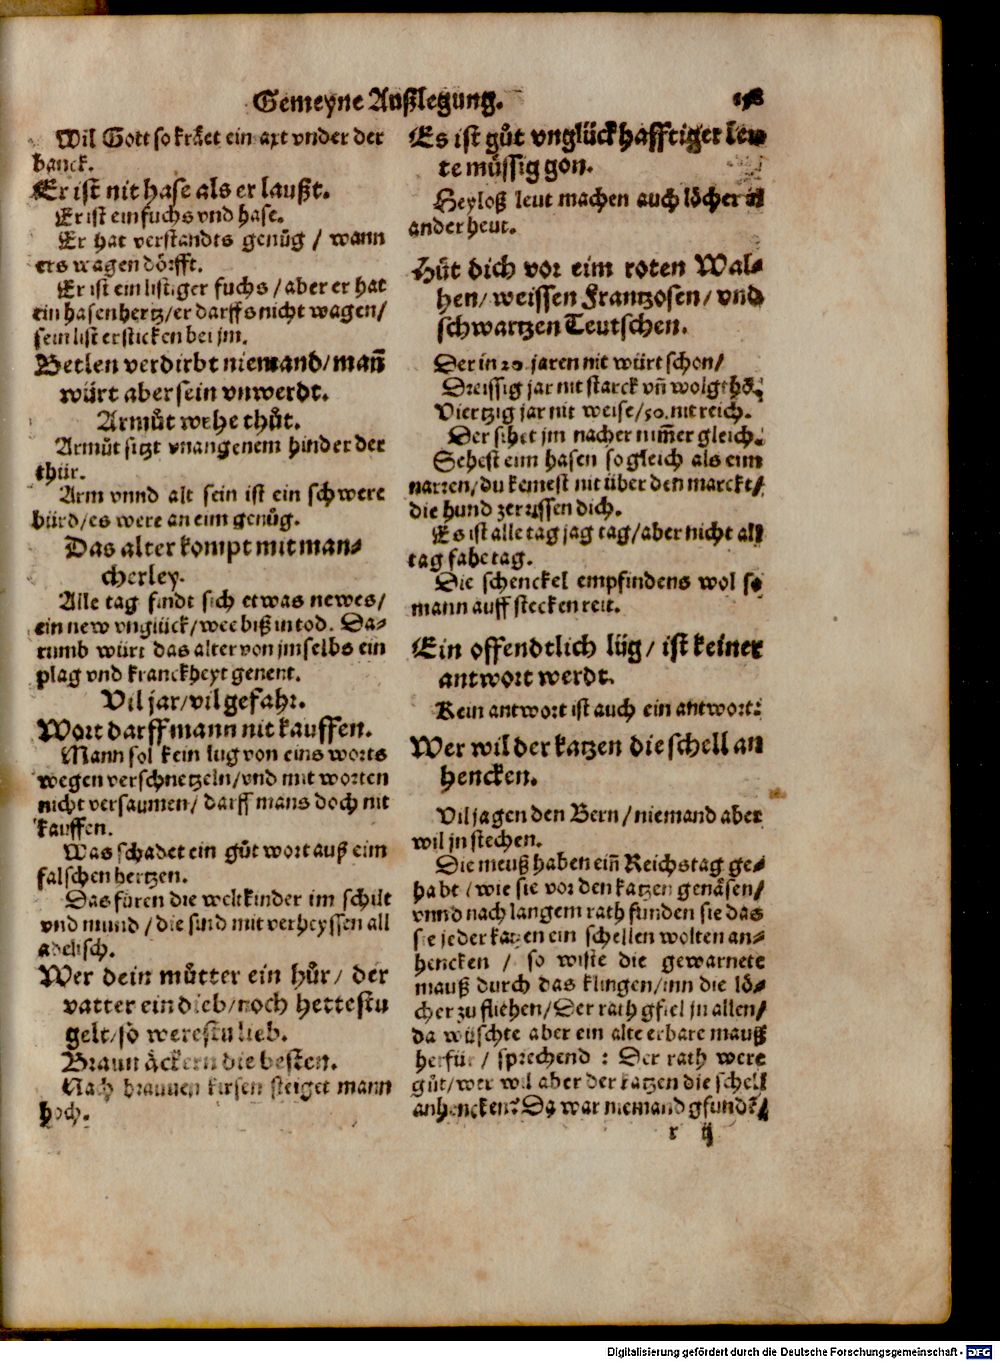 Gemeyne Außlegung.
Wil Gott so kräet ein axt vnder der
banck.
Er ist nit hase als er laußt.
Er ist ein fuchs vnd hase.
Er hat verstandts genůg / wann
ers wagen dörfft.
Er ist ein listiger fuchs / aber er hat
ein hasen hertz / er darffs nicht wagen /
sein list ersticken bei jm.
Betlen verdirbt niemand / mañ
würt aber sein vnwerdt.
Armůt wehe thůt.
Armůt sitzt vnangenem hinder der
thür.
Arm vnnd alt sein ist ein schwere
bürd / es were an eim genůg.
Das alter kompt mit man⸗
cherley.
Alle tag findt sich etwas newes /
ein new vnglück / wee biß in tod. Da⸗
rumb würt das alter von jm selbs ein
plag vnd kranckheyt genent.
Vil jar / vil gefahr.
Wort darff mann nit kauffen.
Mann sol kein lug von eins worts
wegen verschnetzeln / vnd mit worten
nicht versaumen / darff mans doch nit
kauffen.
Was schadet ein gůt wort auß eim
falschen hertzen.
Das füren die weltkinder im schilt
vnd mund / die sind mit verheyssen all
adelisch.
Wer dein můtter ein hůr / der
vatter ein dieb / noch hettestu
gelt / so werestu lieb.
Braun äckern die besten.
Nach braunen kirsen steiget mann
hoch.
Es ist gůt vnglückhafftiger leu
te müssig gon.
Heyloß leut machen auch löcher in
ander heut.
Hůt dich vor eim roten Wal⸗
hen / weissen Frantzosen / vnd
schwartzen Teutschen.
Der in 20. jaren nit würt schon /
Dreissig jar nit starck vñ wolgehö.
Viertzig jar nit weise / 50. nit reich.
Der sihet jm nacher nim̃er gleich.
Sehest eim hasen so gleich als eim
narren / du kemest nit über den marckt /
die hund zerrissen dich.
Es ist alle tag jag tag / aber nicht all
tag fahe tag.
Die schenckel empfindens wol so
mann auff stecken reit.
Ein offendtlich lüg / ist keiner
antwort werdt.
Kein antwort ist auch ein antwort.
Wer wil der katzen die schell an
hencken.
Vil jagen den Bern / niemand aber
wil jn stechen.
Die meuß haben eiñ Reichstag ge⸗
habt / wie sie vor den katzen genäsen /
vnnd nach langem rath funden sie das
sie jeder katzen ein schellen wolten an⸗
hencken / so wiste die gewarnete
mauß durch das klingen / inn die lö⸗
cher zu fliehen / Der rath gfiel jn allen /
da wüschte aber ein alte erbare mauß
herfür / sprechend : Der rath were
gůt / wer wil aber der katzen die schell
anhencken? Da war niemand gfundẽ /
r ij
Digitalisierung gefördert durch die Deutsche Forschungsgemeinschaft - DFG